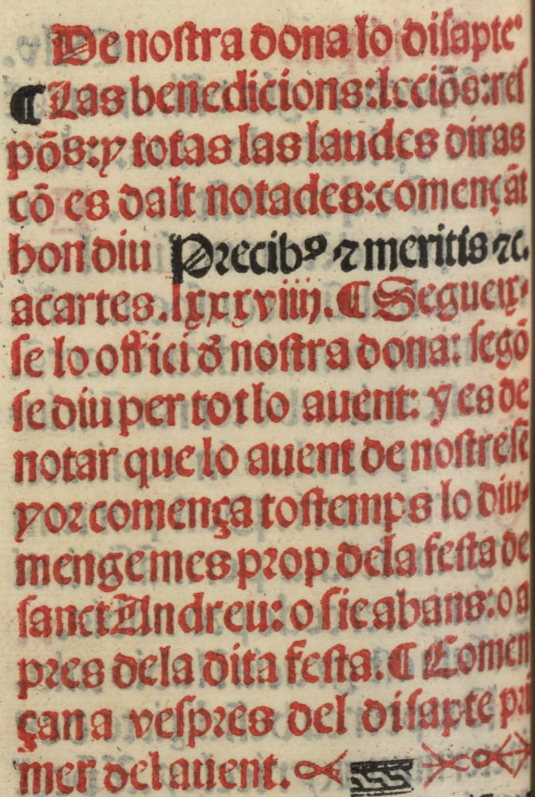 De nostra dona lo disapte
¶ Las benedicions: lcciõs: res
põs: y totas las laudes diras
cõ es dalt notades: començãt
hon diu Precibꝰ ⁊ meritis ⁊c.
acartes. lxxxviiij. ¶ Segueix-
se lo offici d̃ nostra dona: segõ
se diu per tot lo auent: y es de
notar que lo auent de nostre se
yor comença tostemps lo diu-
menge mes prop dela festa de
sanct Andreu: o sie abans: o a
pres dela dita festa. ¶ Comen
çan a vespres del disapte pri
mer del auent.